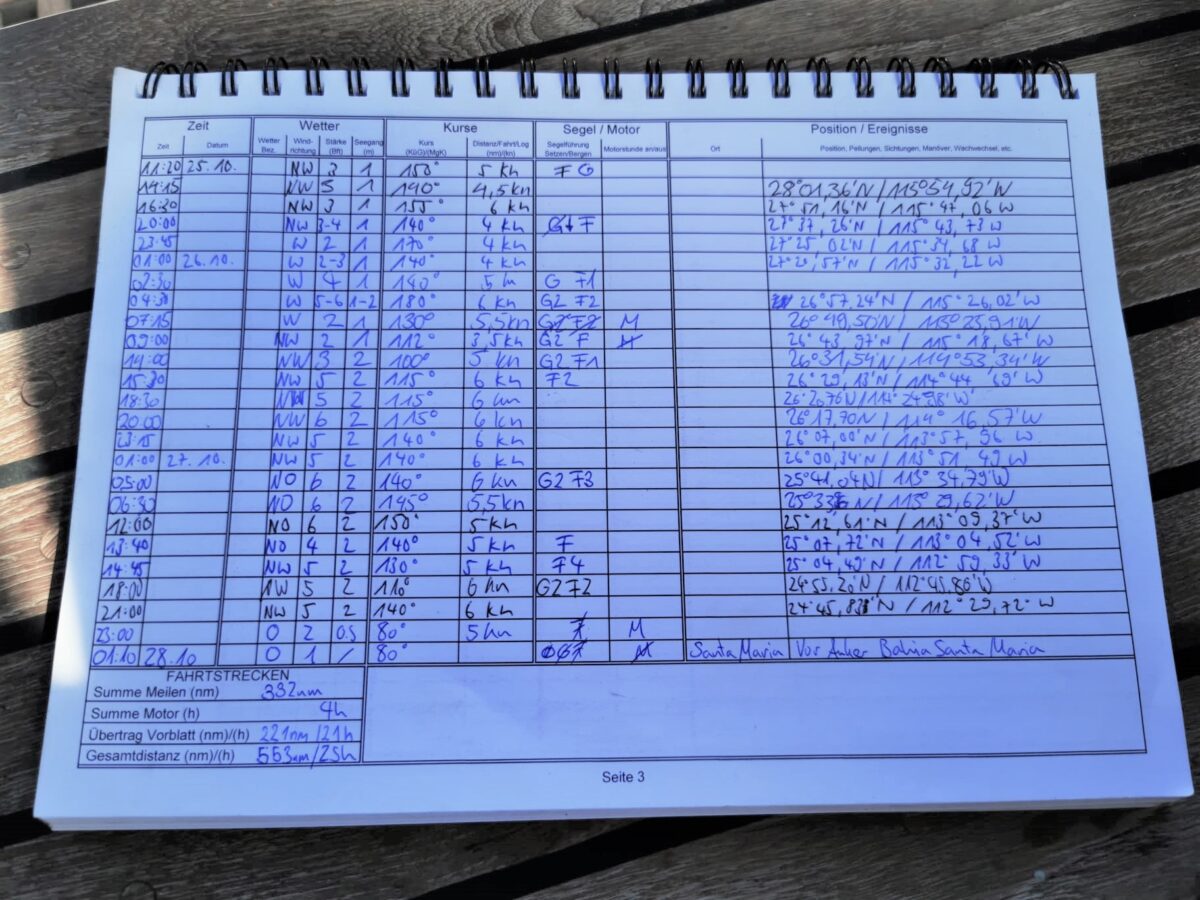 Zeit Wetter Kurse Segel / Motor Position / Ereignisse
Zeit Datum Wetter Bez. Wind-richtung Stärke (Bft) Seegang (m) Kurs (KüG)/(MgK) Distanz/Fahrt/Log (nm)/(kn) Segelführung Setzen/Bergen Motorstunde an/aus Ort Position, Peilungen, Sichtungen, Manöver, Wachwechsel, etc.
11:20 25.10. NW 3 1 150° 5 kn F G
14:15 NW 5 1 140° 4,5kn 28°01,36'N / 115°54,92'W
16:20 NW 3 1 155° 6 kn 27°51,16'N / 115°47,06'W
20:00 NW 3-4 1 140° 4 kn F 27°37,26'N / 115°43,73'W
23:45 W 2 1 170° 4 kn 27°25,02'N / 115°34,68'W
01:00 26.10. W 2-3 1 140° 4 kn 27°20,57'N / 115°32,22'W
02:30 W 4 1 140° G F1
04:30 W 5-6 1-2 180° 6 kn G2 F2 26°57,24'N / 115°26,02'W
07:15 W 2 1 130° 5,5kn G2 F2 M 26°49,50'N / 115°25,91'W
09:00 NW 2 1 112° 3,5kn G2 F M 26°43,97'N / 115°18,67'W
14:00 NW 3 2 100° 5 kn G2 F1 26°31,54'N / 114°53,34'W
15:30 NW 5 2 115° 6 kn F2 26°29,13'N / 114°44,69'W
18:30 NW 5 2 115° 6 kn
20:00 NW 6 2 115° 6 kn 26°17,70N / 114°16,57'W
23:15 NW 5 2 140° 6 kn 26°07,00'N / 113°57,96'W
01:00 27.10. NW 5 2 140° 6 kn 26°00,34'N / 113°51,49'W
05:00 NO 6 2 140° 6 kn G2 F3 25°41,04N / 113°34,79'W
06:30 NO 6 2 145° 5,5kn N / 113°29,62'W
12:00 NO 6 2 150° 5 kn 25°12,61'N / 113°09,37'W
13:40 NO 4 2 140° 5 kn F 25°07,72'N / 113°04,52'W
14:45 NW 5 2 130° 5 kn F4 25°04,49'N / 112°59,33'W
18:00 NW 5 2 110° 6 kn G2 F2 24°55,20'N / 112°45,86'W
21:00 NW 5 2 140° 6 kn 24°45,83'N / 112°29,72'W
23:00 O 2 0.5 80° 5 kn F M
01:10 28.10 O 1 / 80° M Santa Maria Vor Anker Bahia Santa Maria
FAHRTSTRECKEN
Summe Meilen (nm) 332nm
Summe Motor (h) 4h
Übertrag Vorblatt (nm)/(h) 221nm /21h
Gesamtdistanz (nm)/(h) 553nm/25h
Seite 3